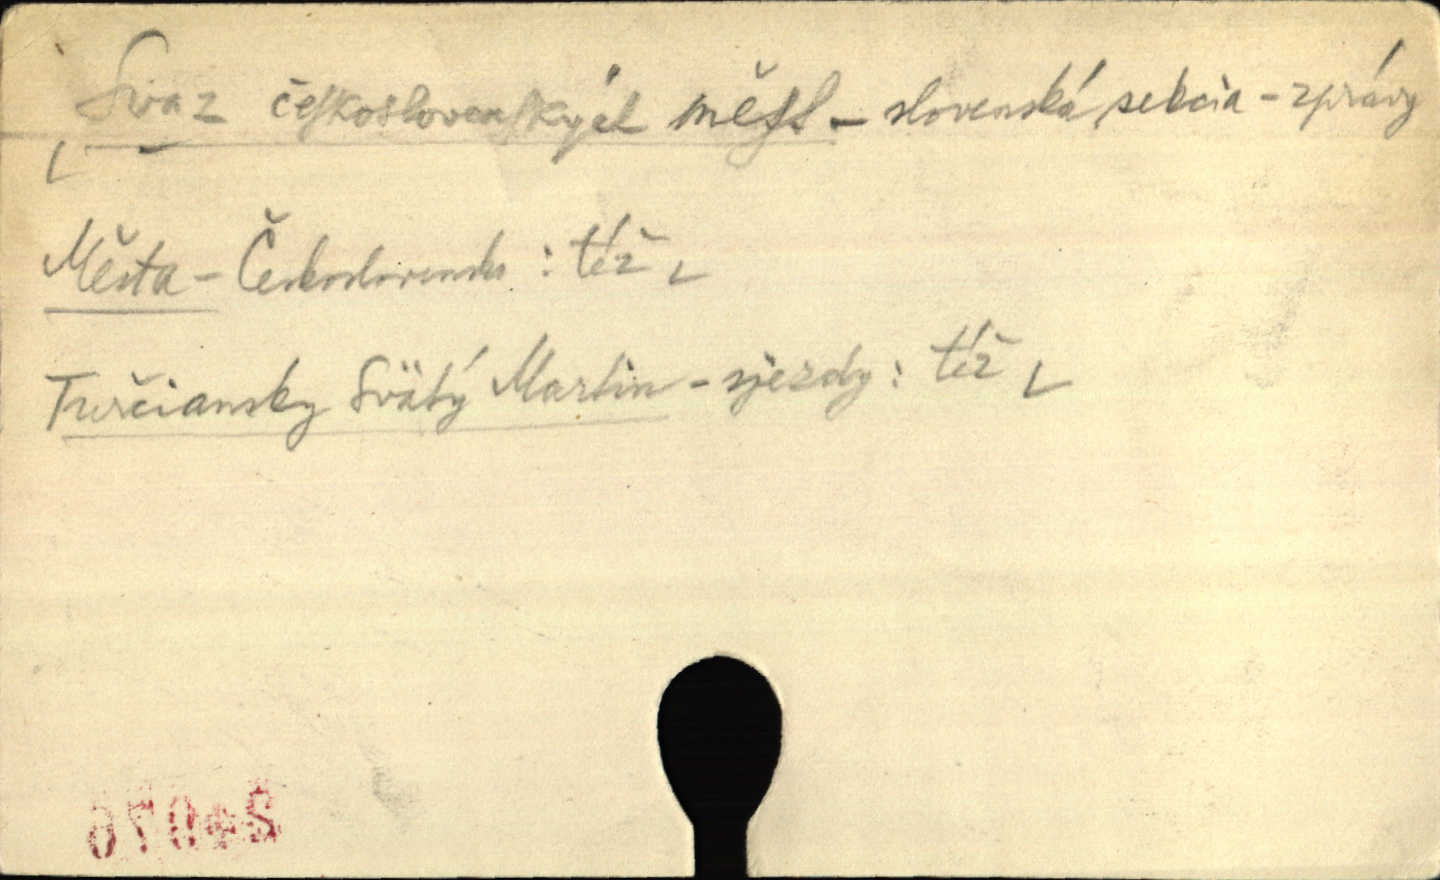 Svaz československých měst - slovenská sekcia - zprávy
Města - Československo : též
Turčiansky Svätý Martin - sjezdy : též